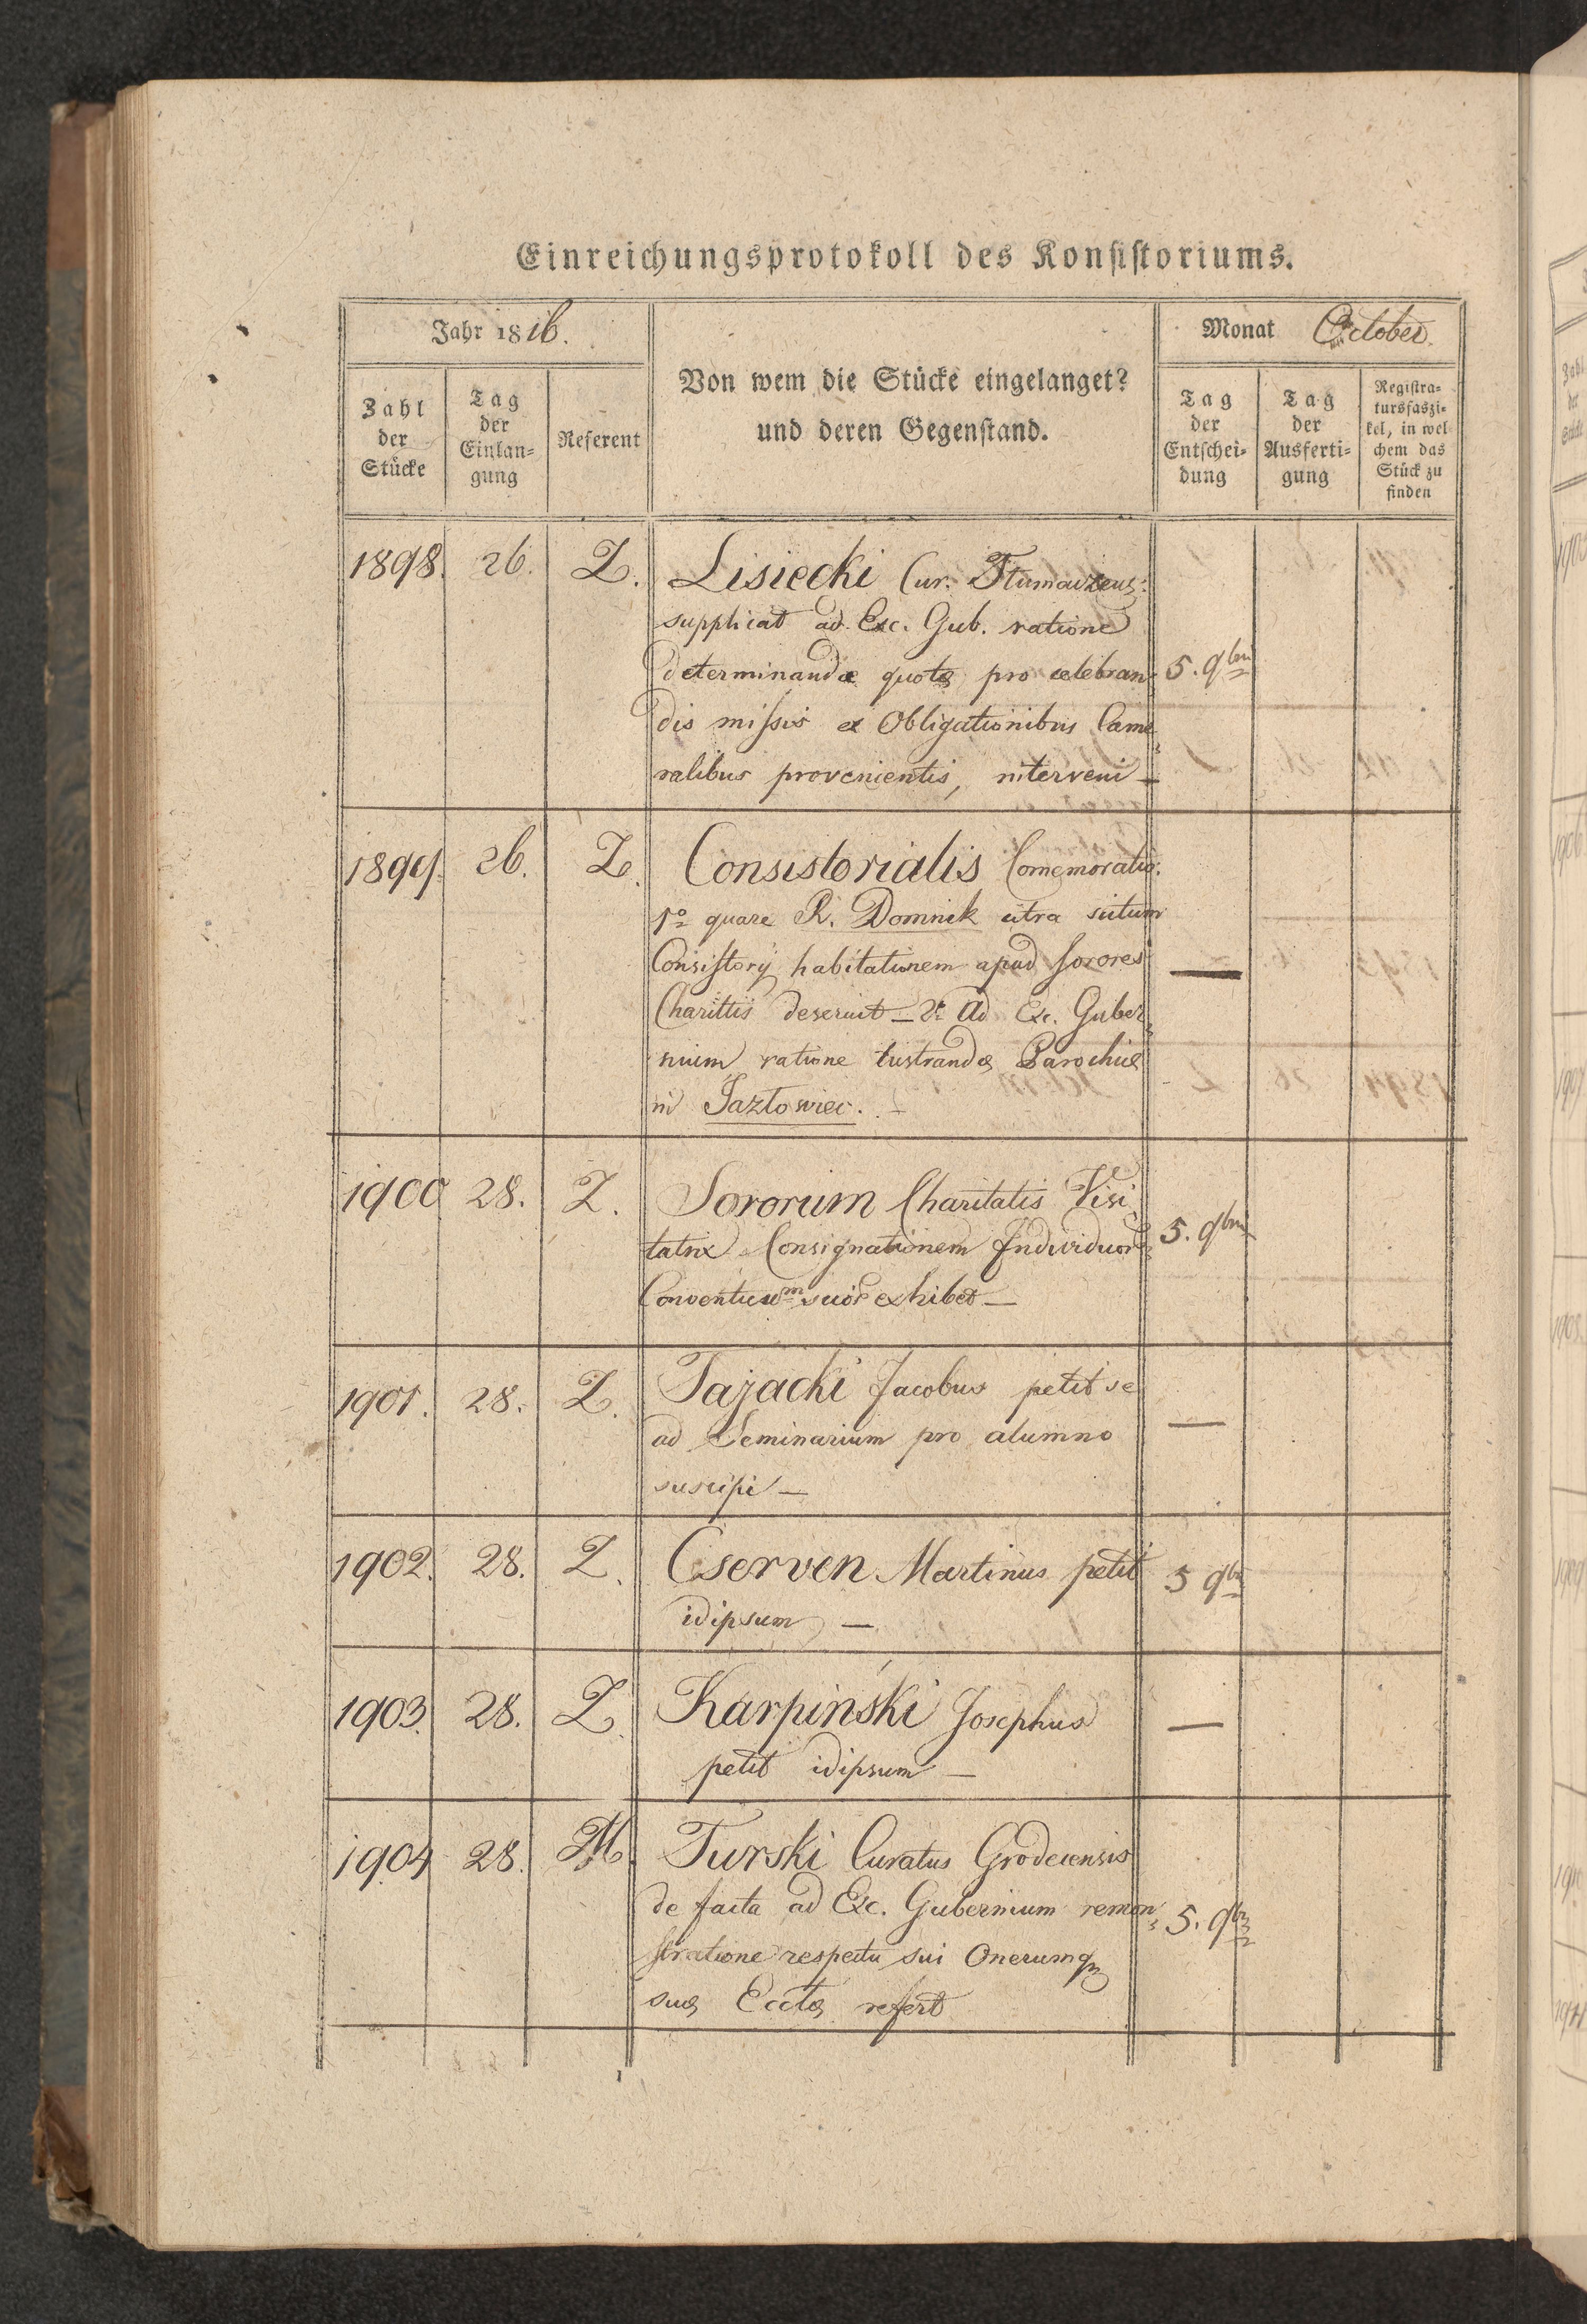 Einreichungsprotokoll des Konsistoriums.
Jahr 1816.
Monat October
Zahl der Stücke
Tag der Einlan= gung
Referent
Von wem die Stücke eingelanget?
und deren Gegenstand.
Tag der Entschei= dung
Tag der Ausferti= gung
Registra= tursfaszi= kel, in wel chem das Stück zu finden
1898. 26. Z. Lisiecki Cur.
supplicat ad Exc. Gub. ratione
determinandæ quotæ pro celebran= 5. 9bris
dis missis ex Obligationibus Came=
ralibus provenientis, interveni —
1899. 26. Z. Consistorialis Comemoratio.
1o quare R. Domnik citra scitum
Consistorij habitationem apud Sorores —
Charittis deseruit — 2o Ad Exc. Guber=
nium ratione lustrandæ Parochiæ
in Jazlowiec. —
1900 28. Z. Sororum Charitatis Visi=
tatrix Consignationem Individuor 5. 9bris
Conventuum suor exhibet —
1901. 28. Z. Jajacki Jacobus petit se
ad Seminarium pro alumno —
suscipi —
1902. 28. Z. Cserven Martinus petit 5 9bris
idipsum —
1903. 28. Z. Karpiński Josephus —
petit idipsum —
1904 28. M. Turski Curatus Grodecensis
de facta ad Exc. Gubernium remon= 5. 9bris
stratione respectu sui Onerumq
suæ Eccłæ refert